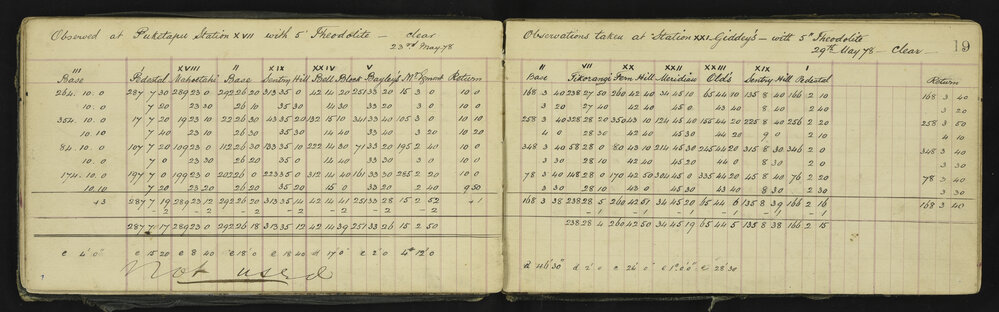 Observed at Puketapu Station XVII with 5" Theodolite — clear
23rd May. 78
III I XVIII II XIX XXIV V
Base Pedestal Nahottahi Base Sentry Hill Bell Block Bayley's Mt Egmont Return
264. 10. 0 287 7 30 289 23 0 292 26 20 313 35 0 42 14 40 251 33 20 15 3 0 10 0
10. 0 7 20 23 30 26 10 35 30 14 30 33 30 3 20 10 0
354. 10. 0 17 7 20 19 23 10 22 26 30 43 35 20 132 15 10 341 33 40 105 3 0 10 0
10. 10 7 40 23 10 26 30 35 30 14 40 33 40 3 20 10 20
84. 10. 0 107 7 20 109 23 0 112 26 30 133 35 10 222 14 30 71 33 20 195 2 40 10 0
10. 0 7 0 23 30 26 20 35 0 14 40 33 30 3 0 10 0
174. 10. 0 197 7 0 199 23 0 202 26 0 223 35 0 312 14 40 161 33 30 285 2 20 10 0
10. 10 7 20 23 20 26 20 35 20 15 0 33 20 2 40 9 50
+3 287 7 19 289 23 12 292 26 20 313 35 14 42 14 41 251 33 28 15 2 52 +1
-2 -2 -2 -2 -2 -2 -2
287 7 17 289 23 0 292 26 18 313 35 12 42 14 39 251 33 26 15 2 50
e 4' 0" e 15 20 e 8 40 e 18 0 e 18 40 d 17 0 e 2' 0 4° 12' 0
Not used
Observations taken at Station XXI Giddey's — with 5" Theodolite
29th May 78 — Clear — 19
II VII XX XXII XXIII XIX I
Base Tikorangi Fern Hill Meridian Old's Sentry Hill Pedestal Return
168 3 40 238 27 50 260 42 40 34 45 10 65 44 10 135 8 40 166 2 10 168 3 40
3 20 27 40 42 40 45 0 43 40 8 40 2 40 3 20
258 3 40 328 28 20 350 43 10 124 45 40 155 44 20 225 8 40 256 2 20 258 3 50
4 0 28 30 42 40 45 30 44 20 9 0 2 10 4 10
348 3 40 58 28 0 80 43 10 214 45 30 245 44 20 315 8 30 346 2 0 348 3 40
3 30 28 10 42 40 45 20 44 0 8 30 2 0 3 30
78 3 40 148 28 0 170 42 50 304 45 0 335 44 20 45 8 40 76 2 20 78 3 40
3 30 28 10 43 0 45 30 43 40 8 30 2 30 3 30
168 3 38 238 28 5 260 42 51 34 45 20 65 44 6 135 8 39 166 2 16 168 3 40
-1 -1 -1 -1 -1 -1
238 28 4 260 42 50 34 45 19 65 44 5 135 8 38 166 2 15
d 46' 30" d 2' 0 e 26' 0 e 1° 0' 0" e 28 30